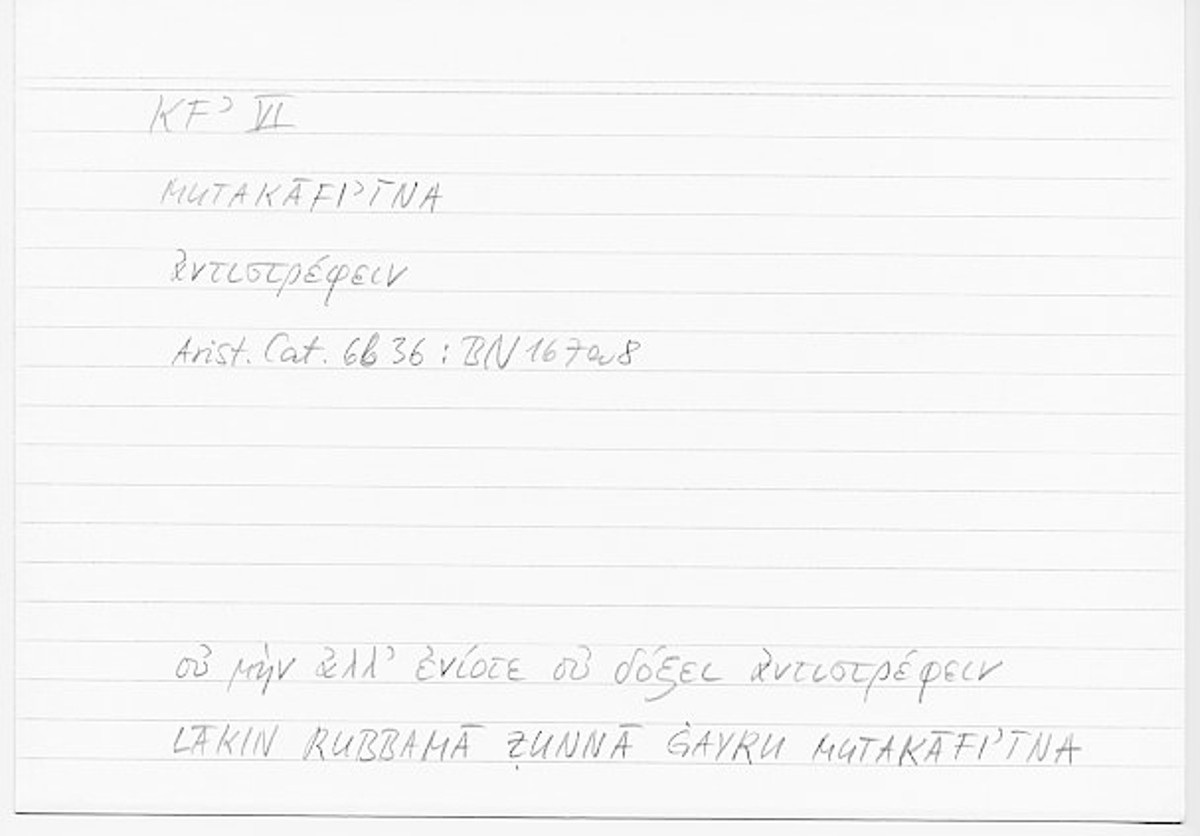 KFʾ VI
MUTAKĀFIʾĪNA
ἀντιστρέφειν
Arist. Cat. 6b36 : BN 167a8
οὐ μὴν ἀλλ᾽ ἐνίοτε οὐ δόξει ἀντιστρέφειν
LĀKIN RUBBAMĀ ẒUNNĀ ĠAYRU MUTAKĀFIʾĪNA